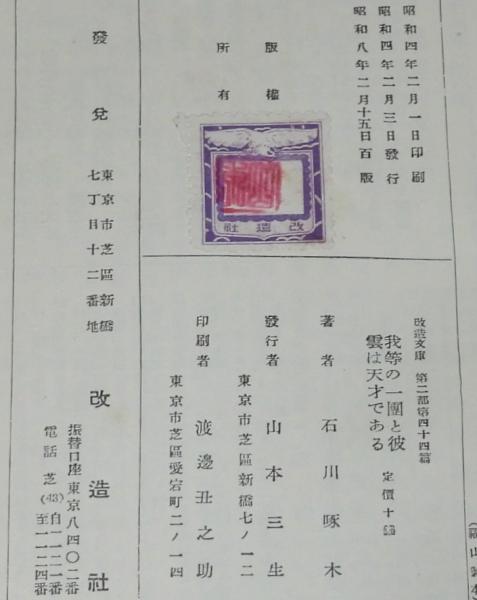 昭和四年二月一日印刷
昭和四年二月三日發行
昭和八年二月十五日百版
版權
所有
改造社
改造文庫 第二部第四十四篇
我等の一團と彼
雲は天才である
定價十錢
著者 石川啄木
發行者 山本三生
東京市芝區新橋七ノ一二
印刷者 渡邊丑之助
東京市芝區愛宕町二ノ一四
發兌
東京市芝區新橋
七丁目十二番地
改造社
振替口座東京八四〇二番
電話芝(43)自一一二一番
至一一二四番